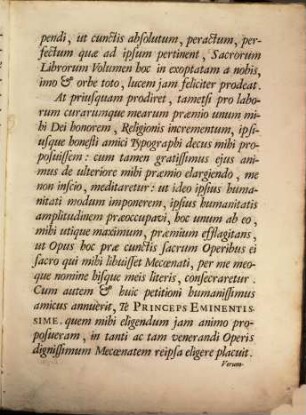 pendi, ut cunctis absolutum, peractum, per-
fectum quæ ad ipsum pertinent, Sacrorum
Librorum Volumen hoc in exoptatam a nobis,
imo & orbe toto, lucem jam feliciter prodeat.
At priusquam prodiret, tametsi pro labo
rum curarumque mearum præmio unum mi-
hi Dei honorem, Religionis incrementum, ipsi-
usque honesti amici Typographi decus mihi pro-
posuissem: cum tamen gratissimus ejus ani-
mus de ulteriore mihi præmio elargiendo, me
non inscio, meditaretur: ut ideo ipsius huma-
nitati modum imponerem, ipsius humanitatis
amplitudinem præoccupavi, hoc unum ab eo,
mihi utique maximum, præmium efflagitans,
ut Opus hoc præ cunctis sacrum Operibus ei
sacro qui mihi libuisset Mecœnati, per me meo-
que nomine hisque meis literis, consecraretur.
Cum autem & huic petitioni humanissimus
amicus annuerit, Te PRINCEPS EMINENTIS-
SIME, quem mihi eligendum jam animo pro-
posueram, in tanti ac tam venerandi Operis
dignissimum Mecœnatem reipsa eligere placuit.
Verum-